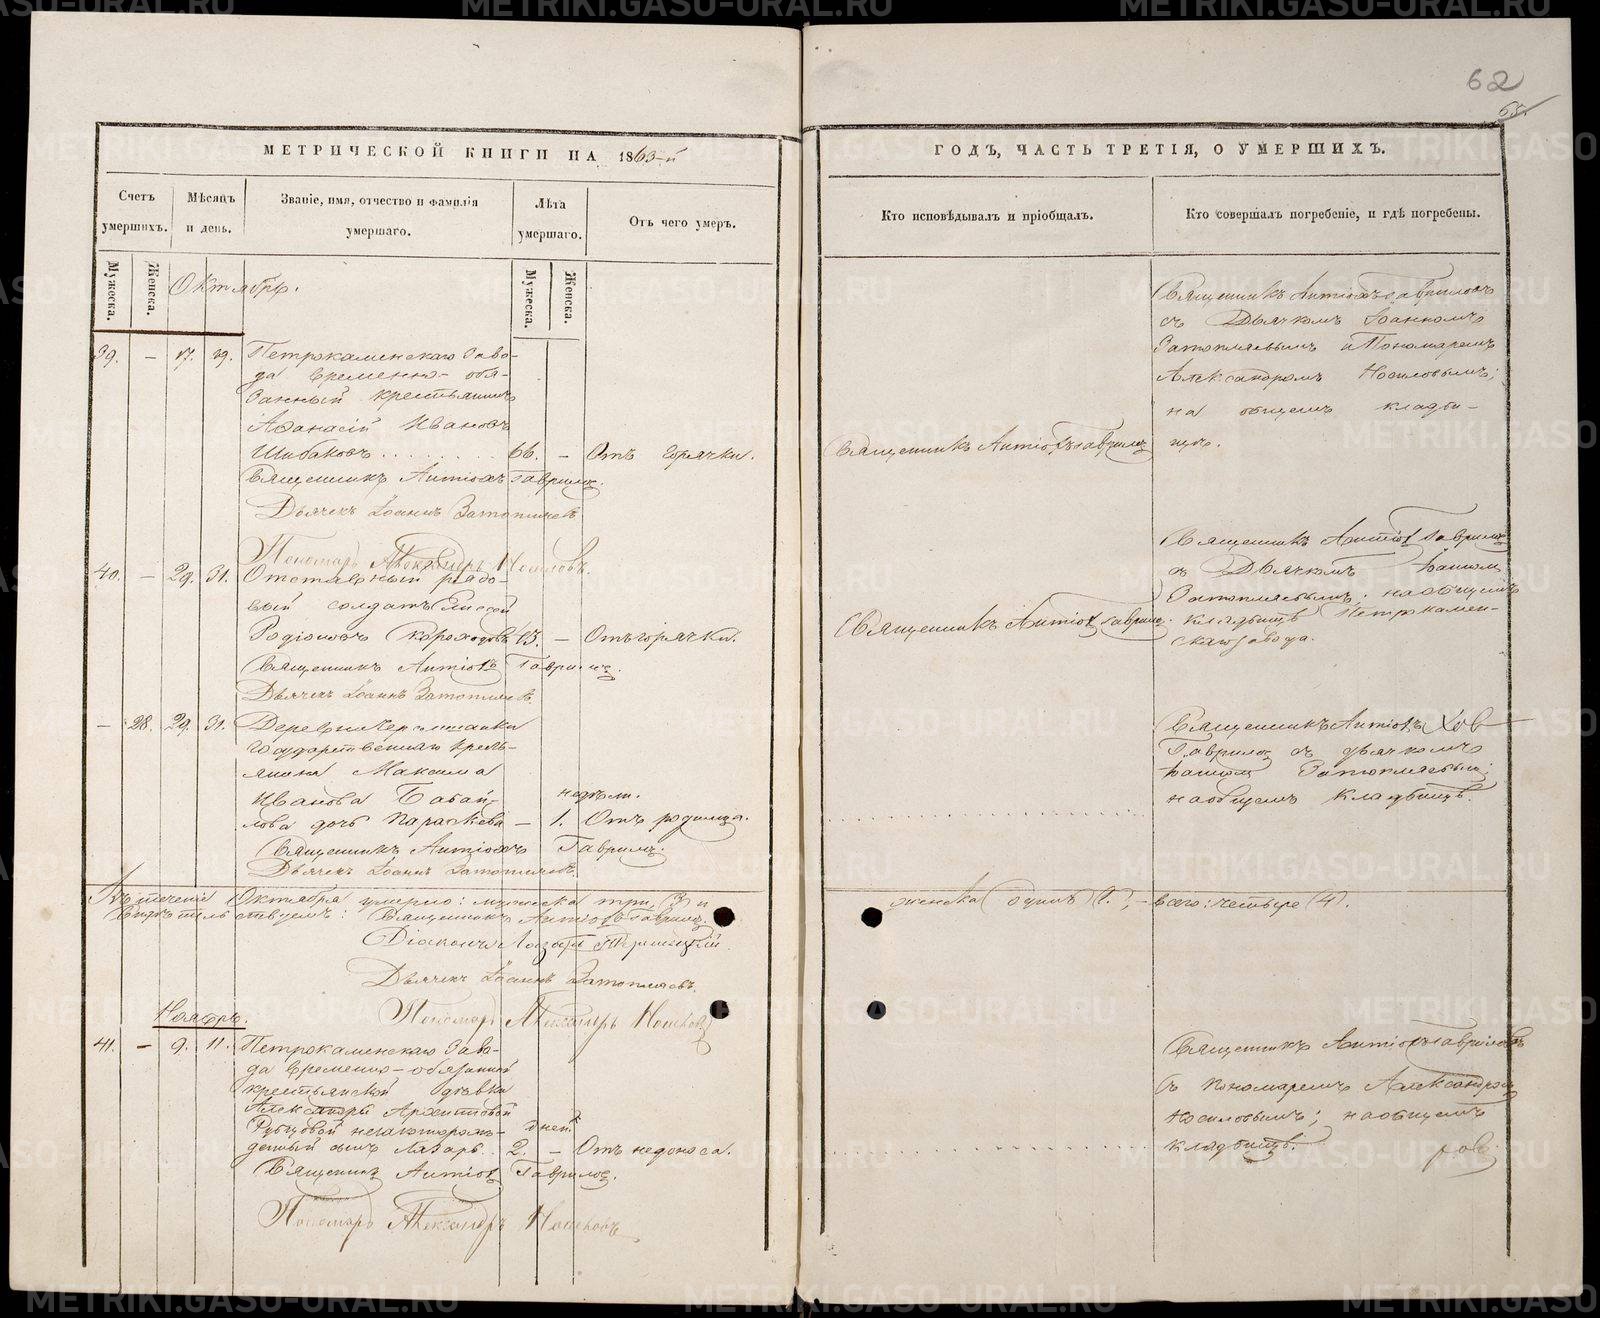 62
65.
МЕТРИЧЕСКОЙ КНИГИ НА 1863-й
Счетъ умершихъ.
Мѣсяцъ и день.
Званіе, имя, отчество и фамилія умершаго.
Лѣта умершаго.
Отъ чего умеръ.
Мужеска.
Женска.
Мужеска.
Женска.
Октябрь.
39. – 17. 19. Петрокаменскаго заво-
да временно-обя-
занный крестьянинъ
Аѳанасій Ивановъ
Шибаковъ . . . . . . . . . 66. – Отъ горячки.
Священникъ Антіохъ Гаврилов
Дьячекъ Іоаннъ Затопляевъ
Пономарь Александръ Носиловъ.
40. – 29. 31. Отставный рядо-
вый солдатъ Елисей
Родіоновъ – Отъ горячки.
Священникъ Антіохъ Гаврилов
Дьячекъ Іоаннъ Затопляевъ
– 28. 29. 31. Деревни
государственнаго кресть-
янина Максима
Иванова недѣли.
дочь Параскева – 1. Отъ родимца.
Священникъ Антіохъ Гаврилов
Дьячекъ Іоаннъ Затопляевъ
Въ теченіи Октября умерло: мужеска три (3) и
Свидѣтельствуемъ: Священникъ Антіохъ Гаврилов
Діаконъ
Дьячекъ Іоаннъ Затопляевъ.
Пономарь Александръ Носиловъ
Ноябрь.
41. – 9. 11. Петрокаменскаго заво-
да временно-обязанной
крестьянской дѣвки
Александры Архиповой
незаконорож- дней
денный сынъ Лазарь. . 2. – Отъ недоноса.
Священник Антіох Гаврилов
Пономарь Александръ Носиловъ
ГОДЪ, ЧАСТЬ ТРЕТІЯ, О УМЕРШИХЪ.
Кто исповѣдывалъ и пріобщалъ.
Кто совершалъ погребеніе, и гдѣ погребены.
Священникъ Антіохъ Гавриловъ
съ Дьячкомъ Іоанномъ
Затопляевымъ и Пономаремъ
Александромъ Носиловымъ;
на общемъ кладби-
щѣ.
Священникъ Антіохъ Гаврилов
Священникъ Антіохъ Гаврилов
съ Дьячкомъ Іоанном
Затопляевымъ; на общемъ
кладбищѣ Петрокамен-
скаго завода.
Священникъ Антіох Гаврилов.
Священникъ Антіохъ
Гаврилов съ дьячкомъ
Іоанном Затопляевым;
на общемъ кладбищѣ.
женска одинъ (1.), – всего: четыре (4).
Священникъ Антіохъ Гавриловъ
съ пономаремъ Александром
Носиловымъ; на общемъ
кладбищѣ.
METRIKI.GASO-URAL.RU